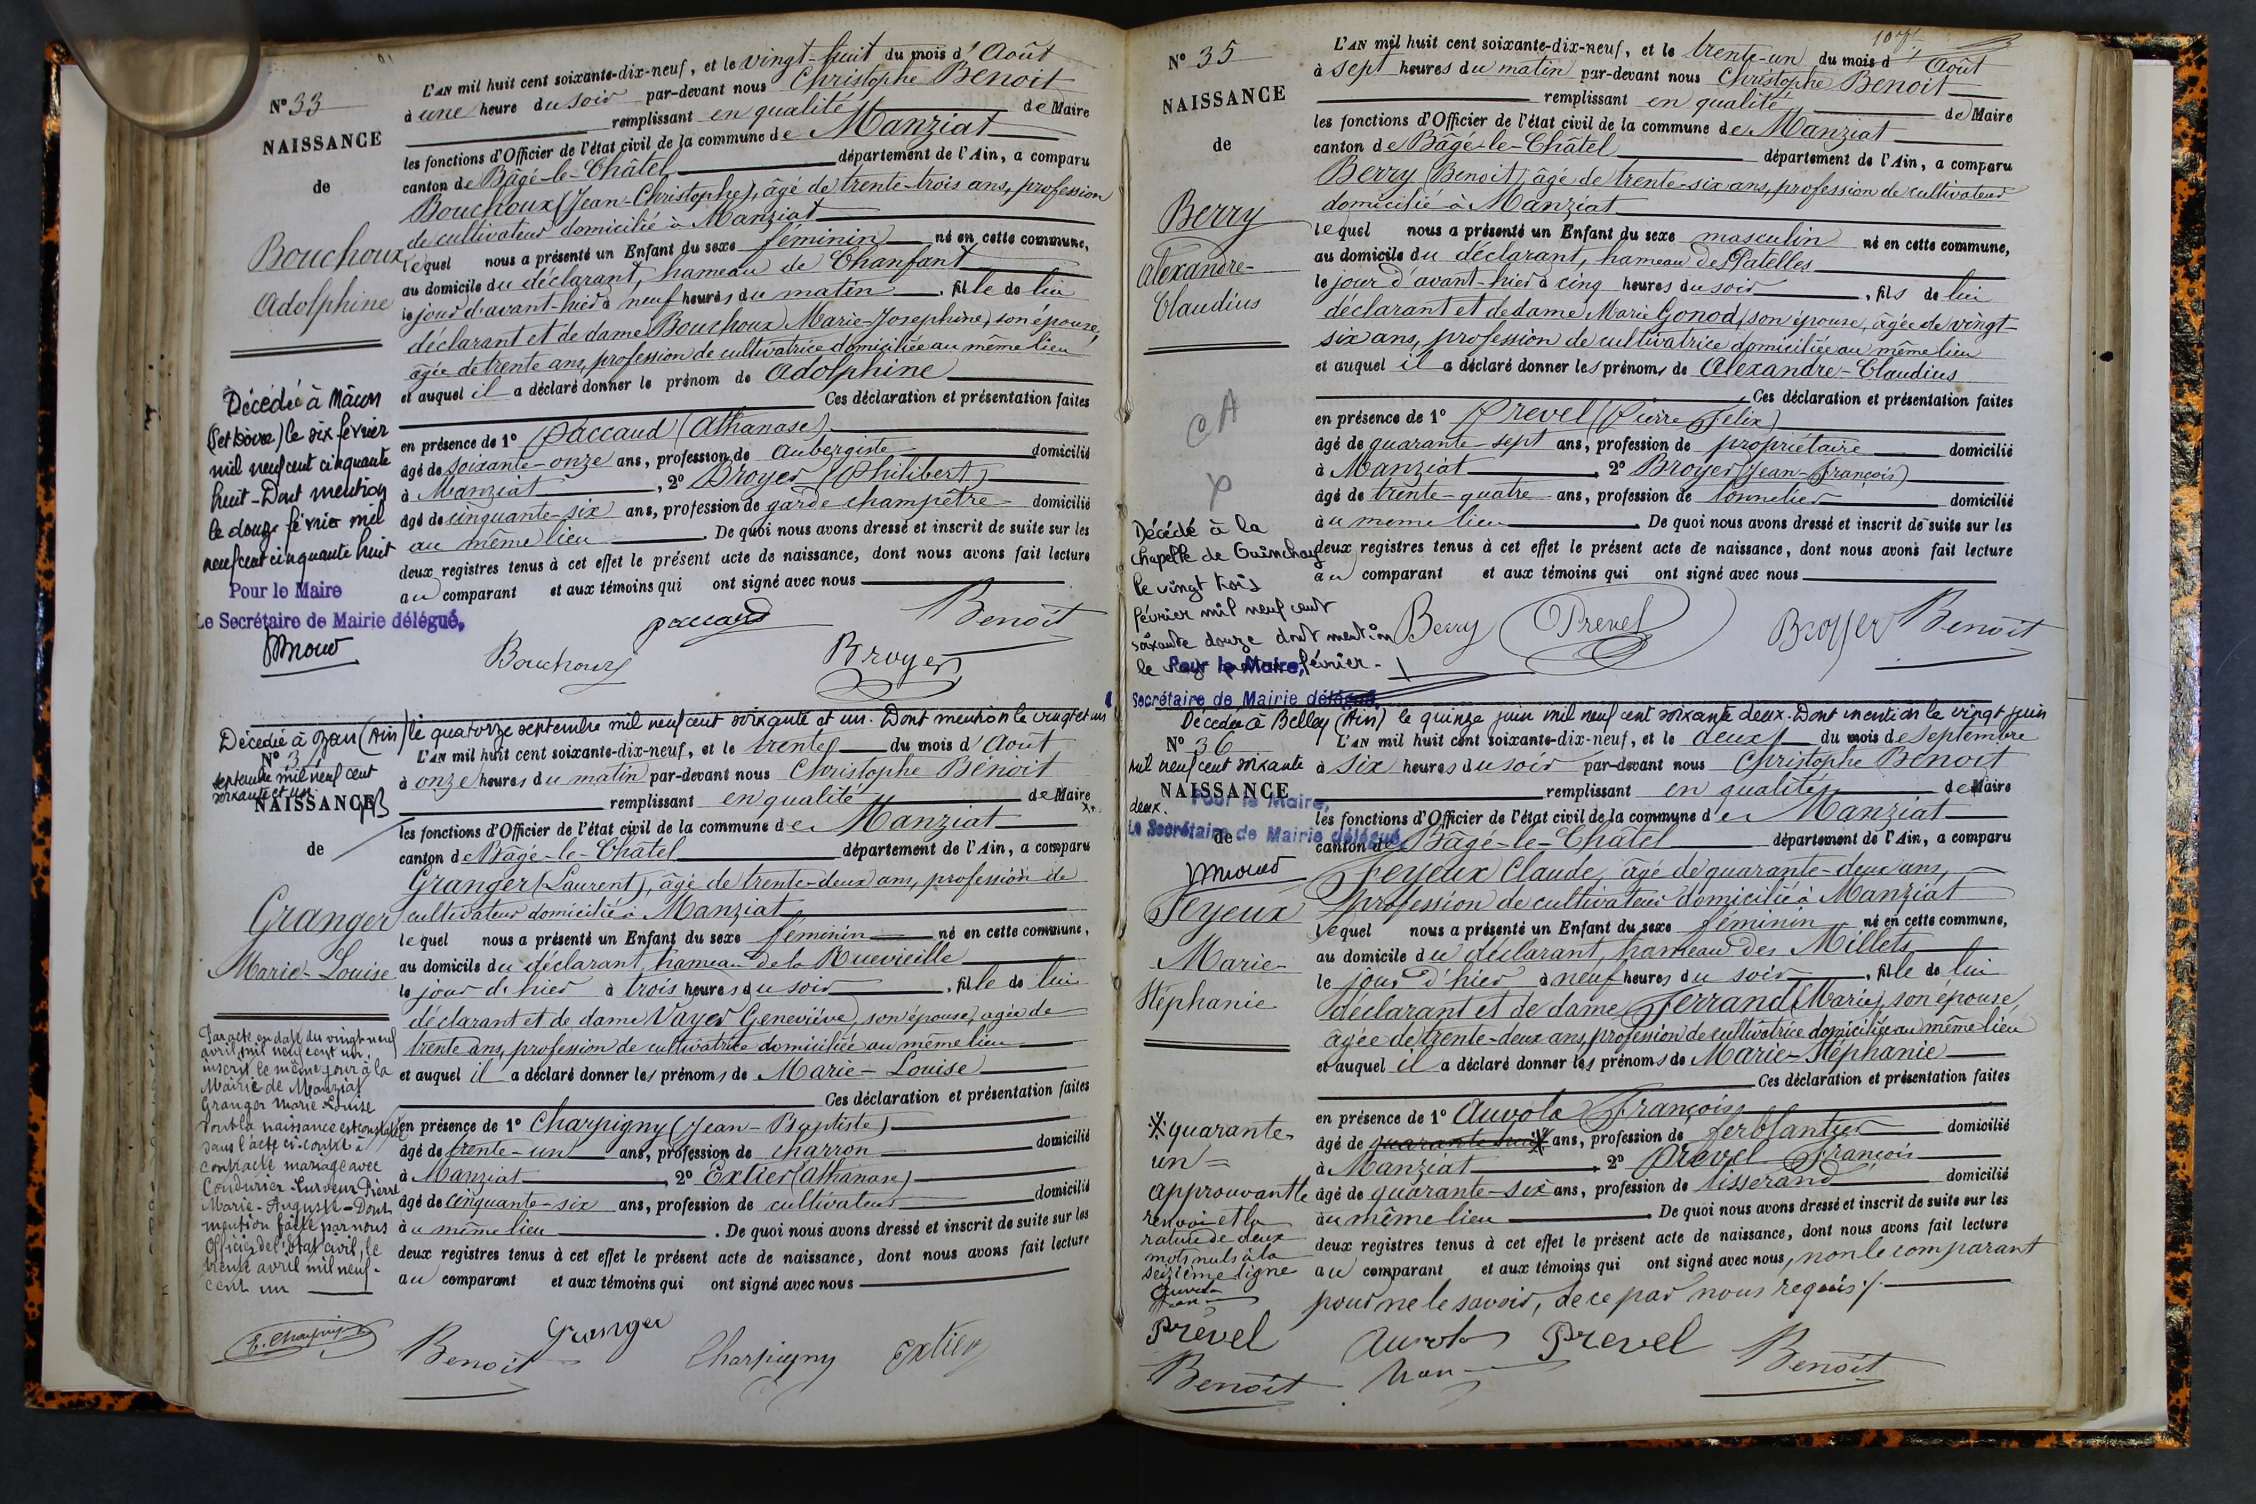 N° 33
NAISSANCE
de
Bouchoux
Adolphine
Décédée à Mâcon
le six février
mil neuf cent cinquante
huit - Dont mention
le douze février mil
neuf cent cinquante huit
Pour le Maire
Le Secrétaire de Mairie délégué,
L'AN mil huit cent soixante-dix-neuf, et le vingt-huit du mois d'Août
à une heure du soir par-devant nous Christophe Benoit
remplissant en qualité de Maire
les fonctions d'Officier de l'état civil de la commune de Manziat
canton de Bâgé-le-Châtel département de l'Ain, a comparu
Bouchoux (Jean-Christophe), âgé de trente-trois ans, profession
de cultivateur domicilié à Manziat
lequel nous a présenté un Enfant du sexe féminin né en cette commune,
au domicile du déclarant, hameau de Chanfant
le jour d'avant-hier à neuf heures du matin, fille de lui
déclarant et de dame Bouchoux Marie-Josephine, son épouse,
âgée de trente ans, profession de cultivatrice domiciliée au même lieu
et auquel il a déclaré donner le prénom de Adolphine
Ces déclaration et présentation faites
en présence de 1° Paccaud (Athanase)
âgé de soixante-onze ans, profession de aubergiste domicilié
à Manziat, 2° Broyer (Philibert)
âgé de cinquante-six ans, profession de garde champêtre domicilié
au même lieu. De quoi nous avons dressé et inscrit de suite sur les
deux registres tenus à cet effet le présent acte de naissance, dont nous avons fait lecture
au comparant et aux témoins qui ont signé avec nous
paccaud Benoit
Bouchoux Broyer
Décédée à Ozan (Ain) le quatorze septembre mil neuf cent soixante et un. Dont mention le vingt et un
septembre mil neuf cent
soixante et un
N° 3
NAISSANCE
de
Granger
Marie-Louise
Par acte en date du vingt-neuf
avril mil neuf cent un,
inscrit le même jour à la
Mairie de Manziat
Granger Marie Louise
dont la naissance est constatée
dans l'acte ci-contre à
contracté mariage avec
Condurier-Curveur Pierre
Marie-Auguste - Dont
mention faite par nous
Officier de l'Etat civil, le
trente avril mil neuf-
cent un
L'AN mil huit cent soixante-dix-neuf, et le trente du mois d'Août
à onze heures du matin par-devant nous Christophe Benoit
remplissant en qualité de Maire
les fonctions d'Officier de l'état civil de la commune de Manziat
canton de Bâgé-le-Châtel département de l'Ain, a comparu
Granger (Laurent), âgé de trente-deux ans, profession de
cultivateur domicilié à Manziat
lequel nous a présenté un Enfant du sexe féminin né en cette commune,
au domicile du déclarant, hameau de la Ruevieille
le jour d'hier à trois heures du soir, fille de lui
déclarant et de dame Vayer Geneviève, son épouse, agée de
trente ans, profession de cultivatrice domiciliée au même lieu
et auquel il a déclaré donner les prénoms de Marie-Louise
Ces déclaration et présentation faites
en présence de 1° Charpigny (Jean-Baptiste)
âgé de trente-un ans, profession de charron domicilié
à Manziat, 2° Extier (Athanase)
âgé de cinquante-six ans, profession de cultivateur domicilié
au même lieu. De quoi nous avons dressé et inscrit de suite sur les
deux registres tenus à cet effet le présent acte de naissance, dont nous avons fait lecture
au comparant et aux témoins qui ont signé avec nous
Benoit Granger Charpigny Extier
N° 35
NAISSANCE
de
Berry
Alexandre-
Claudius
Décédé à la
Chapelle de Guinchay
le vingt trois
février mil neuf cent
soixante douze dont mention
le février
Pour le Maire,
Secrétaire de Mairie délégué,
L'AN mil huit cent soixante-dix-neuf, et le trente-un du mois d'Août
à sept heures du matin par-devant nous Christophe Benoit
remplissant en qualité de Maire
les fonctions d'Officier de l'état civil de la commune de Manziat
canton de Bâgé-le-Châtel département de l'Ain, a comparu
Berry (Benoit), âgé de trente-six ans, profession de cultivateur
domicilié à Manziat
lequel nous a présenté un Enfant du sexe masculin né en cette commune,
au domicile du déclarant, hameau des Patelles
le jour d'avant-hier à cinq heures du soir, fils de lui
déclarant et de dame Marie Gonod, son épouse, âgée de vingt-
six ans, profession de cultivatrice domiciliée au même lieu
et auquel il a déclaré donner les prénoms de Alexandre-Claudius
Ces déclaration et présentation faites
en présence de 1° Prevel (Pierre Felix)
âgé de quarante-sept ans, profession de propriétaire domicilié
à Manziat, 2° Broyer (Jean-François)
âgé de trente-quatre ans, profession de tonnelier domicilié
au même lieu. De quoi nous avons dressé et inscrit de suite sur les
deux registres tenus à cet effet le présent acte de naissance, dont nous avons fait lecture
au comparant et aux témoins qui ont signé avec nous
Berry Prevel Broyer Benoit
Décédée à Belley (Ain) le quinze juin mil neuf cent soixante deux. Dont mention le vingt juin
mil neuf cent soixante
deux.
N° 36
NAISSANCE
de
Pour le Maire,
Le Secrétaire de Mairie délégué,
Feyeux
Marie-
Stéphanie
quarante-
un
approuvant le
renvoi et la
rature de deux
mots nuls à la
seizième ligne
Prevel
Benoit
L'AN mil huit cent soixante-dix-neuf, et le deux du mois de Septembre
à six heures du soir par-devant nous Christophe Benoit
remplissant en qualité de Maire
les fonctions d'Officier de l'état civil de la commune de Manziat
canton de Bâgé-le-Châtel département de l'Ain, a comparu
Feyeux Claude, âgé de quarante-deux ans,
profession de cultivateur domicilié à Manziat
lequel nous a présenté un Enfant du sexe féminin né en cette commune,
au domicile du déclarant, hameau des Millets
le jour d'hier à neuf heures du soir, fille de lui
déclarant et de dame Ferrand (Marie), son épouse,
âgée de trente-deux ans, profession de cultivatrice domiciliée au même lieu
et auquel il a déclaré donner les prénoms de Marie-Stéphanie
Ces déclaration et présentation faites
en présence de 1° Auvola François
âgé de ans, profession de ferblantier domicilié
à Manziat 2° Prevel François
âgé de quarante-six ans, profession de tisserand domicilié
au même lieu. De quoi nous avons dressé et inscrit de suite sur les
deux registres tenus à cet effet le présent acte de naissance, dont nous avons fait lecture
au comparant et aux témoins qui ont signé avec nous, non le comparant
pour ne le savoir, de ce par nous requis
Auvola Prevel Benoit